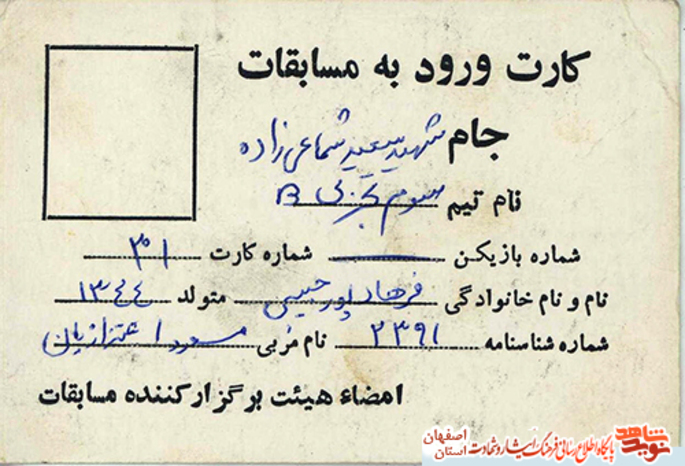 کارت ورود به مسابقات
جام شهید سعید شماعی زاده
نام تیم سوم تجربی B
شماره بازیکن شماره کارت ۳۰۱
نام و نام خانوادگی فرهاد پورحبیبی متولد ۱۳۴۴
شماره شناسنامه ۲۳۹۱ نام مربی مسعود اعتزازیان
امضاء هیئت برگزار کننده مسابقات
نوید شاهد
پایگاه اطلاع رسانی فرهنگ ایثار و شهادت
اصفهان
استان